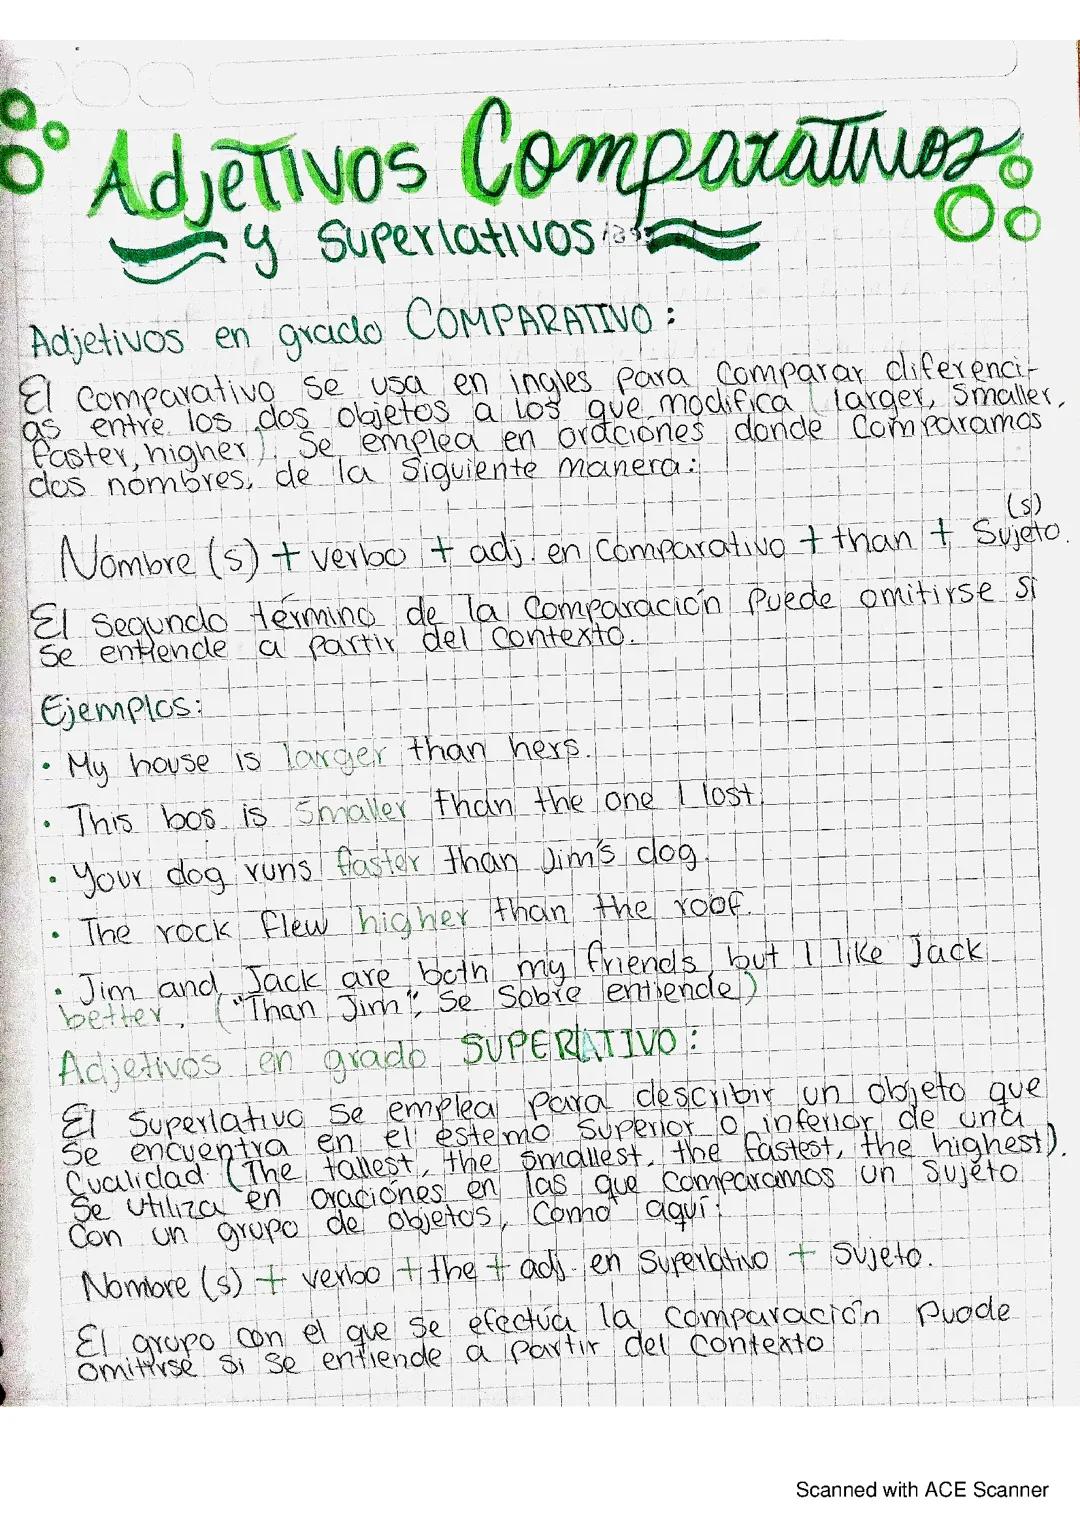 Adjetivos Comparativos
y Superlativos
Adjetivos en grado COMPARATIVO:
El comparativo se usa en ingles para comparar diferenci-
as entre los dos objetos a los que modifica (larger, smaller,
faster, higher). Se emplea en oraciones donde comparamos
dos nombres, de la siguiente manera:
Nombre (s) + verbo + adj. en comparativo + than + Sujeto (s).
El segundo término de la comparación puede omitirse si
se entiende a partir del contexto.
Ejemplos:
• My house is larger than hers.
• This bos is smaller than the one I lost.
• Your dog runs faster than Jim's dog.
• The rock flew higher than the roof.
• Jim and Jack are both my friends, but I like Jack
better. ("Than Jim", se sobre entiende)
Adjetivos en grado SUPERLATIVO:
El superlativo se emplea para describir un objeto que
se encuentra en el estemo superior o inferior de una
cualidad (The tallest, the smallest, the fastest, the highest).
Se utiliza en oraciones en las que comparamos un sujeto
con un grupo de objetos, como aquí:
Nombre (s) + verbo + the + adj. en superlativo + sujeto.
El grupo con el que se efectúa la comparación puede
omitirse si se entiende a partir del contexto
Scanned with ACE Scanner